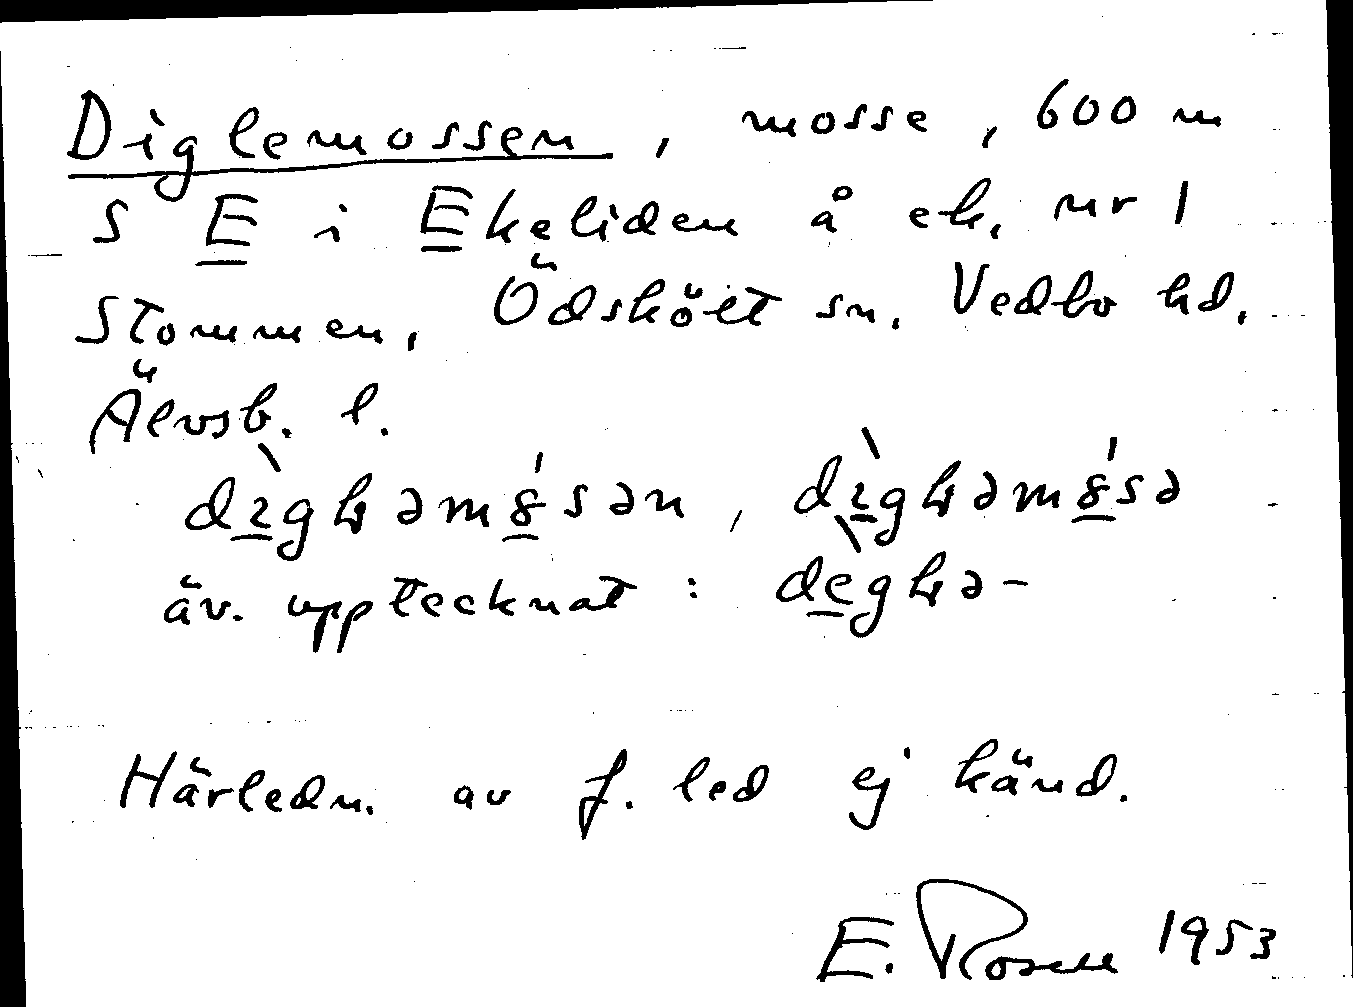 Diglemossen, mosse, 600 m
S E i Ekeliden å ek. nr 1
Stommen, Ödskölt sn. Vedbo hd.
Älvsb. l.
äv. upptecknat:
Härledn. av f. led ej känd.
E. Rosell 1953